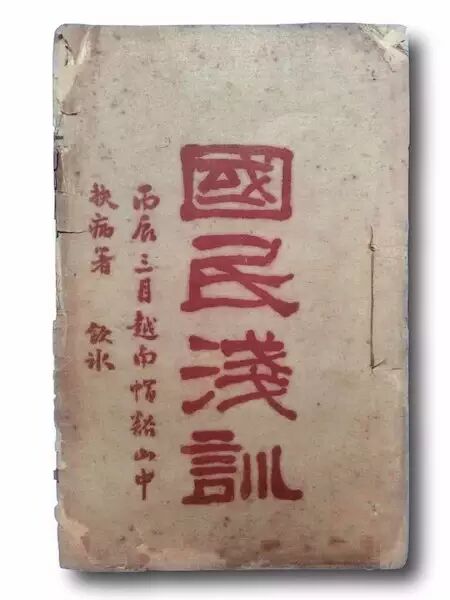 國民淺訓
丙辰三月越南帽谿山中
扶病著 飲冰